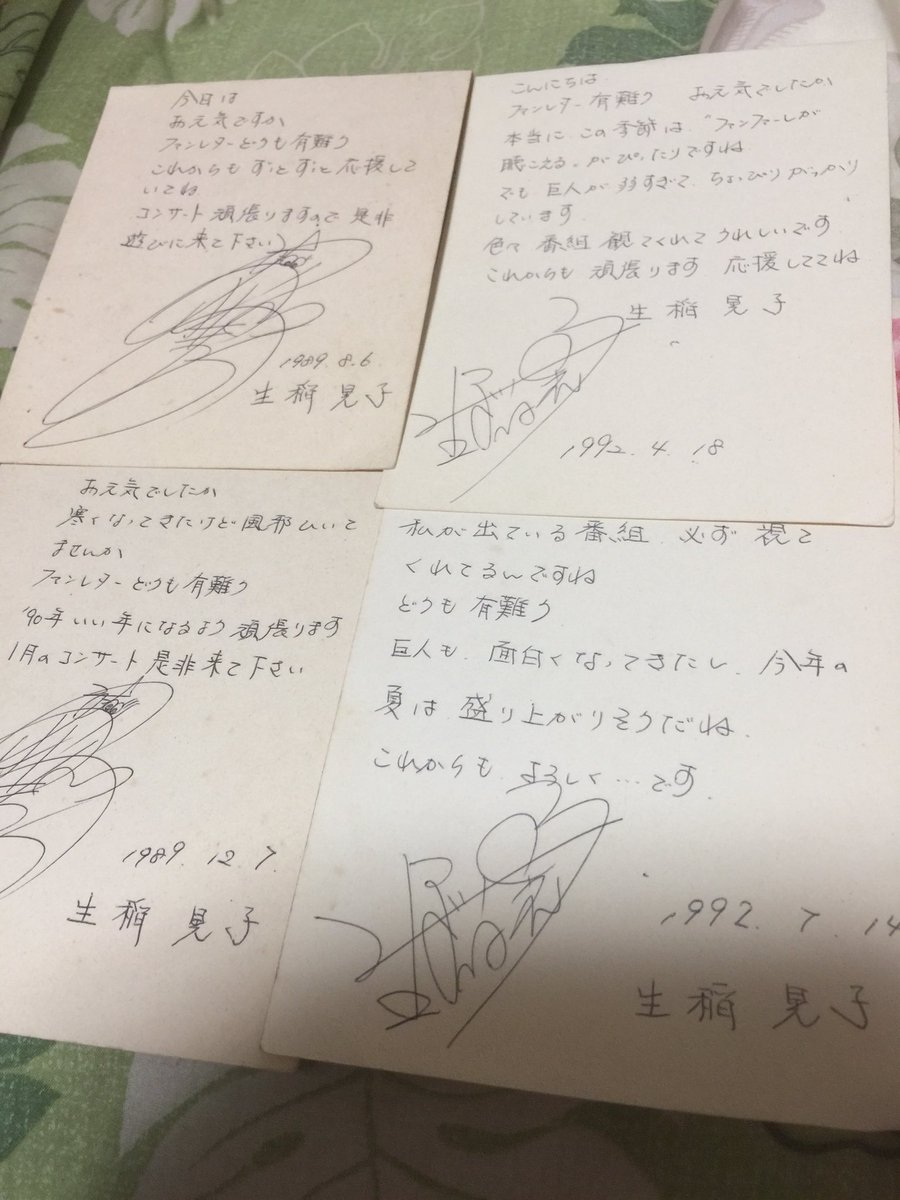 今日は
お元気ですか
ファンレターどうも有難う
これからもずっとずっと応援して
いてね
コンサート頑張りますので是非
遊びに来て下さい
1989.8.6
生稲晃子
こんにちは
ファンレター有難う お元気でしたか
本当に、この季節は、“ファンファーレが
聴こえる”がぴったりですね
でも巨人が弱すぎて、ちょっぴりがっかり
しています
色々番組観てくれてうれしいです
これからも頑張ります 応援しててね
生稲晃子
1992.4.18
お元気でしたか
寒くなってきたけど風邪ひいて
ませんか
ファンレターどうも有難う
'90年いい年になるよう頑張ります
1月のコンサート是非来て下さい
1989.12.7
生稲晃子
私が出ている番組、必ず視て
くれてるんですね
どうも有難う
巨人も、面白くなってきたし、今年の
夏は盛り上がりそうだね
これからも、よろしく…です
1992.7.14
生稲晃子